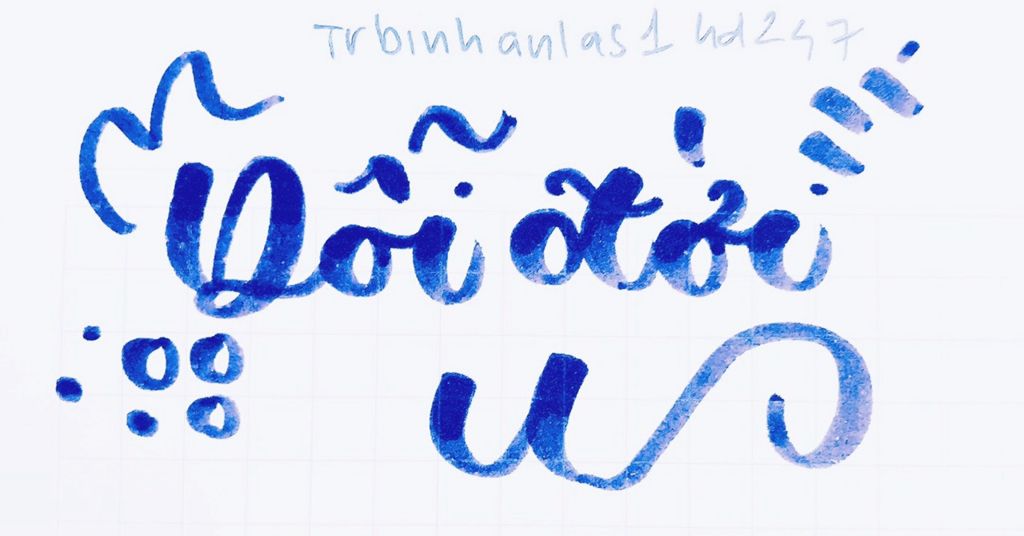 Trbinhanlas1 hd247
Dỗi đời
u